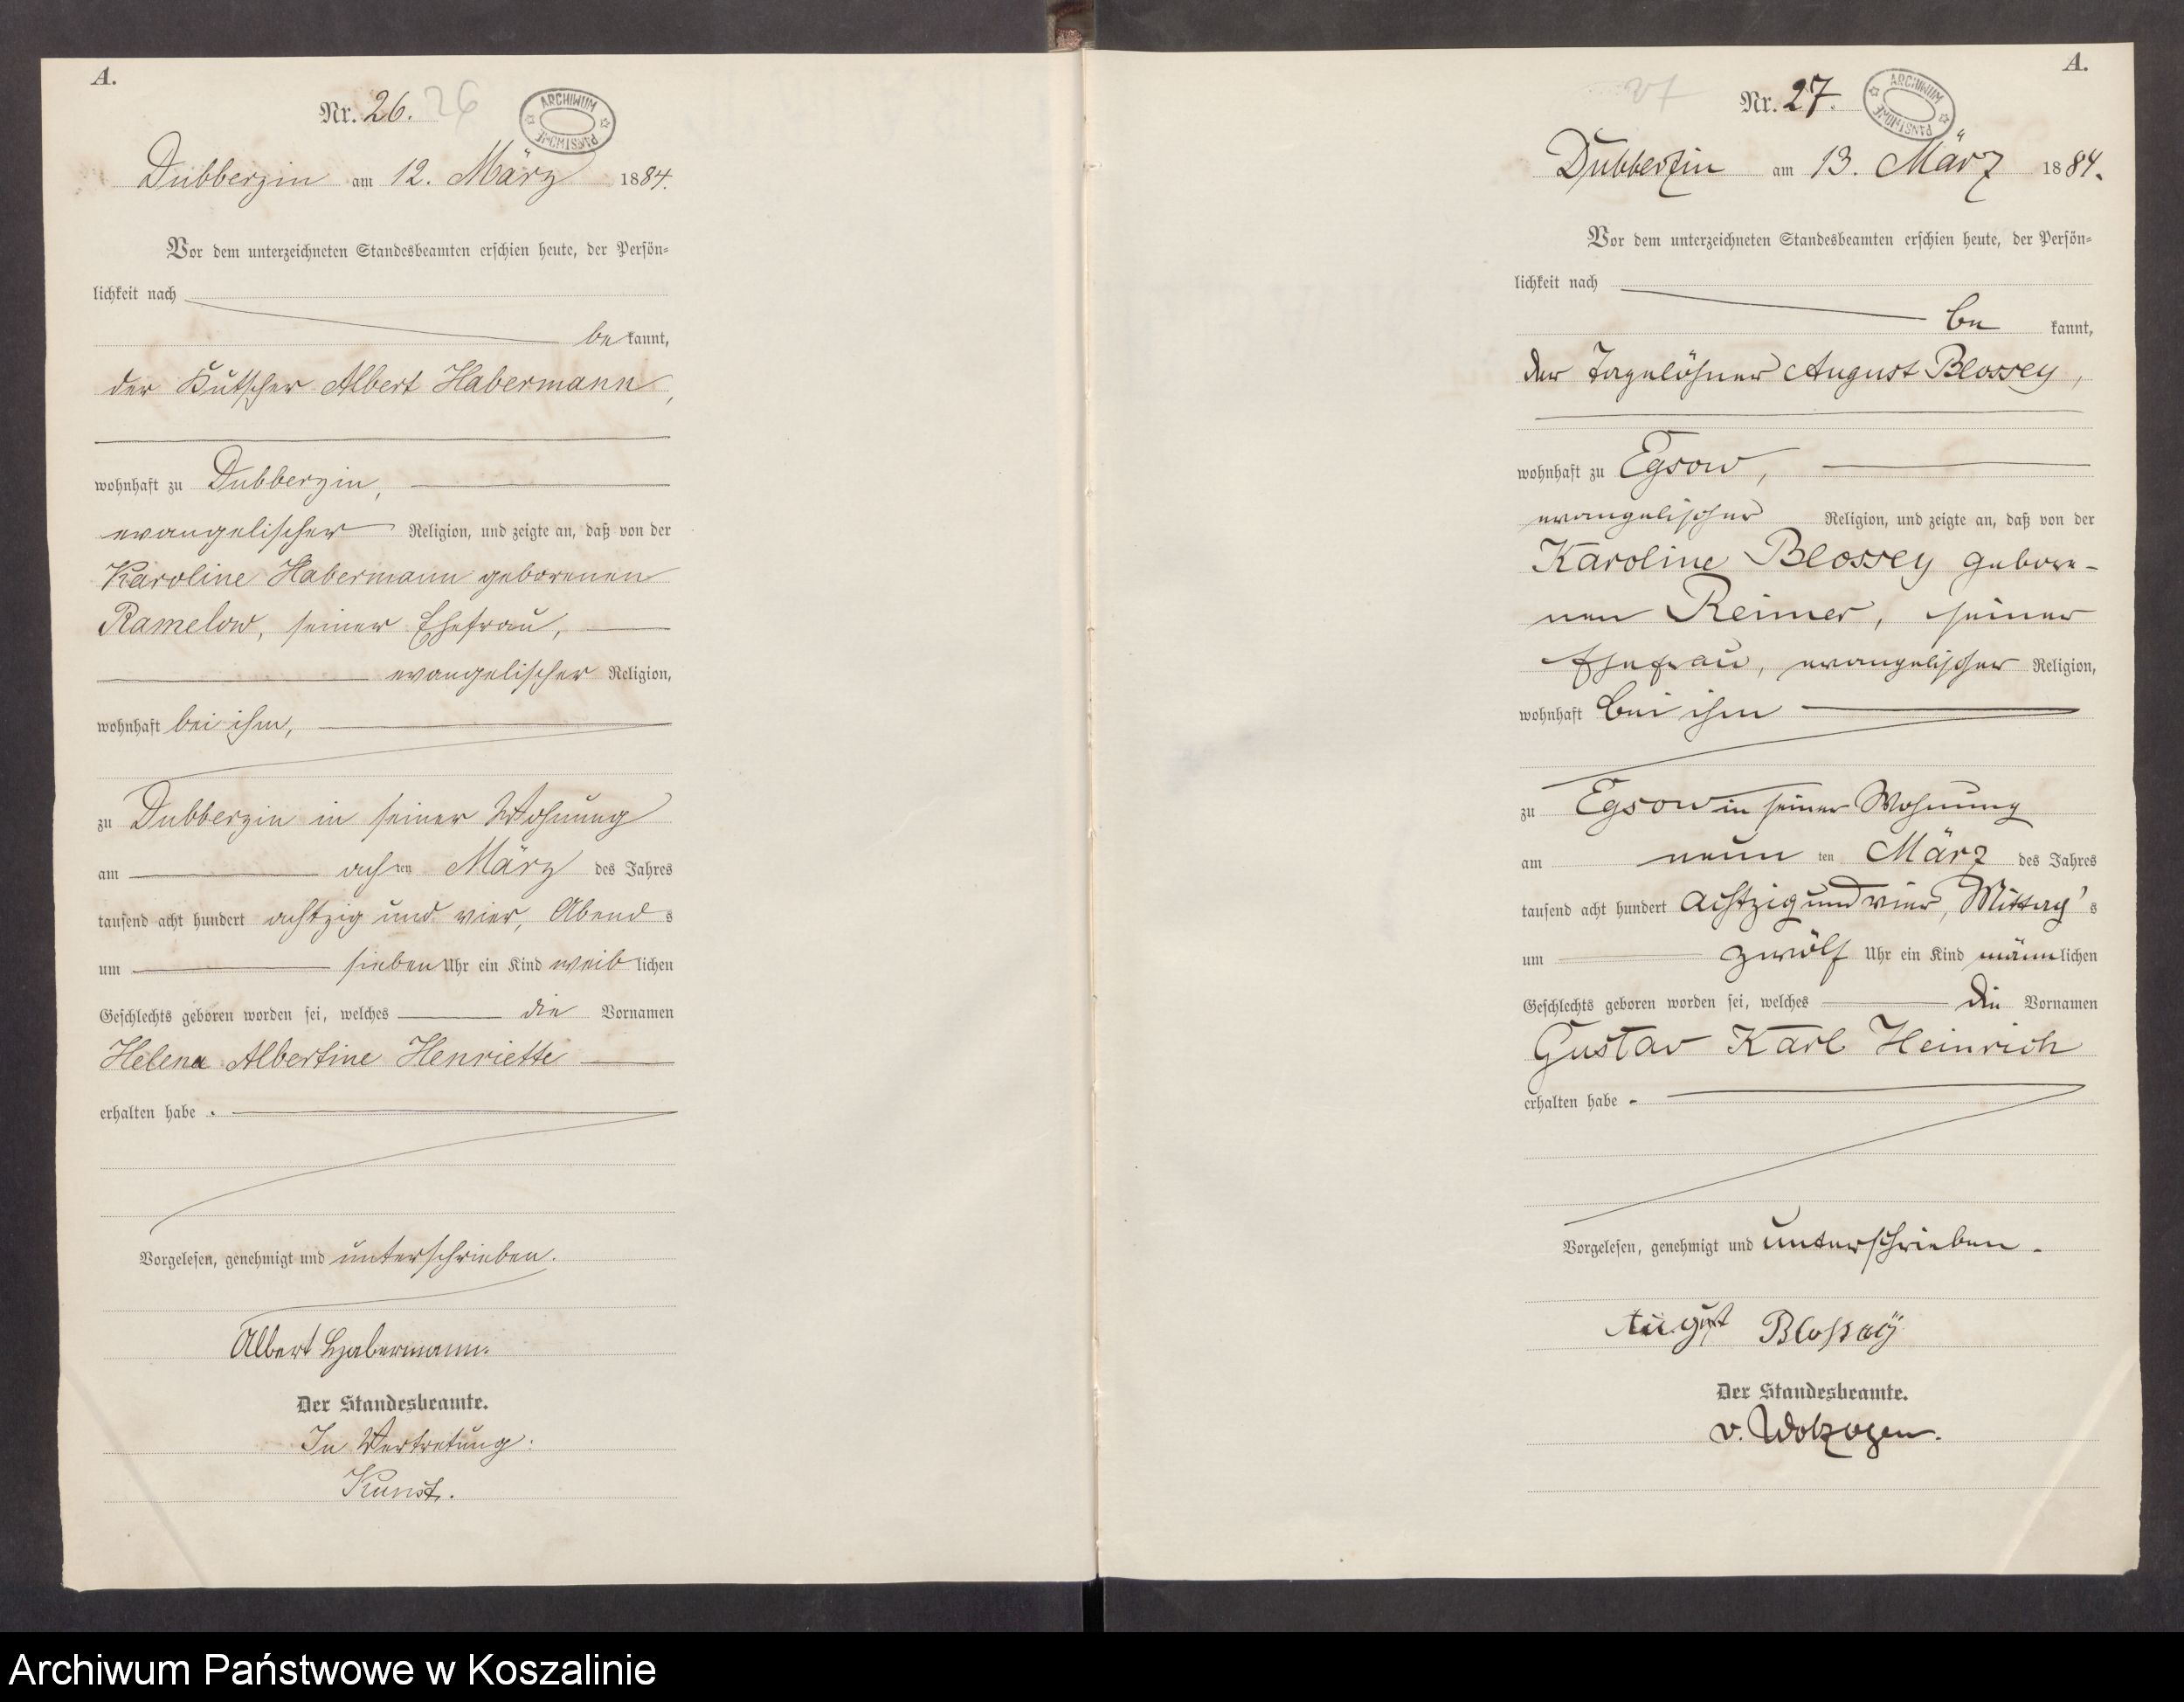 A.
Nr. 26. 26
ARCHIWUM PAŃSTWOWE
Dubberzin am 12. März 1884.
Vor dem unterzeichneten Standesbeamten erschien heute, der Persön=
lichkeit nach
be kannt,
der Kutscher Albert Habermann,
wohnhaft zu Dubberzin,
evangelischer Religion, und zeigte an, daß von der
Karoline Habermann geborenen
Ramelow, seiner Ehefrau,
evangelischer Religion,
wohnhaft bei ihm,
zu Dubberzin in seiner Wohnung
am achten März des Jahres
tausend acht hundert achtzig und vier, Abends
um sieben Uhr ein Kind weiblichen
Geschlechts geboren worden sei, welches die Vornamen
Helena Albertine Henriette
erhalten habe.
Vorgelesen, genehmigt und unterschrieben.
Albert Habermann.
Der Standesbeamte.
In Vertretung:
Kunst.
A.
27 Nr. 27.
ARCHIWUM PAŃSTWOWE
Dubberzin am 13. März 1884.
Vor dem unterzeichneten Standesbeamten erschien heute, der Persön=
lichkeit nach
be kannt,
der Tagelöhner August Blossey,
wohnhaft zu Egsow,
evangelischer Religion, und zeigte an, daß von der
Karoline Blossey gebore-
nen Reimer, seiner
Ehefrau, evangelischer Religion,
wohnhaft bei ihm
zu Egsow in seiner Wohnung
am neun ten März des Jahres
tausend acht hundert achtzig und vier, Mittag's
um zwölf Uhr ein Kind männlichen
Geschlechts geboren worden sei, welches die Vornamen
Gustav Karl Heinrich
erhalten habe.
Vorgelesen, genehmigt und unterschrieben.
August Blossaÿ
Der Standesbeamte.
v. Wolzogen.
Archiwum Państwowe w Koszalinie